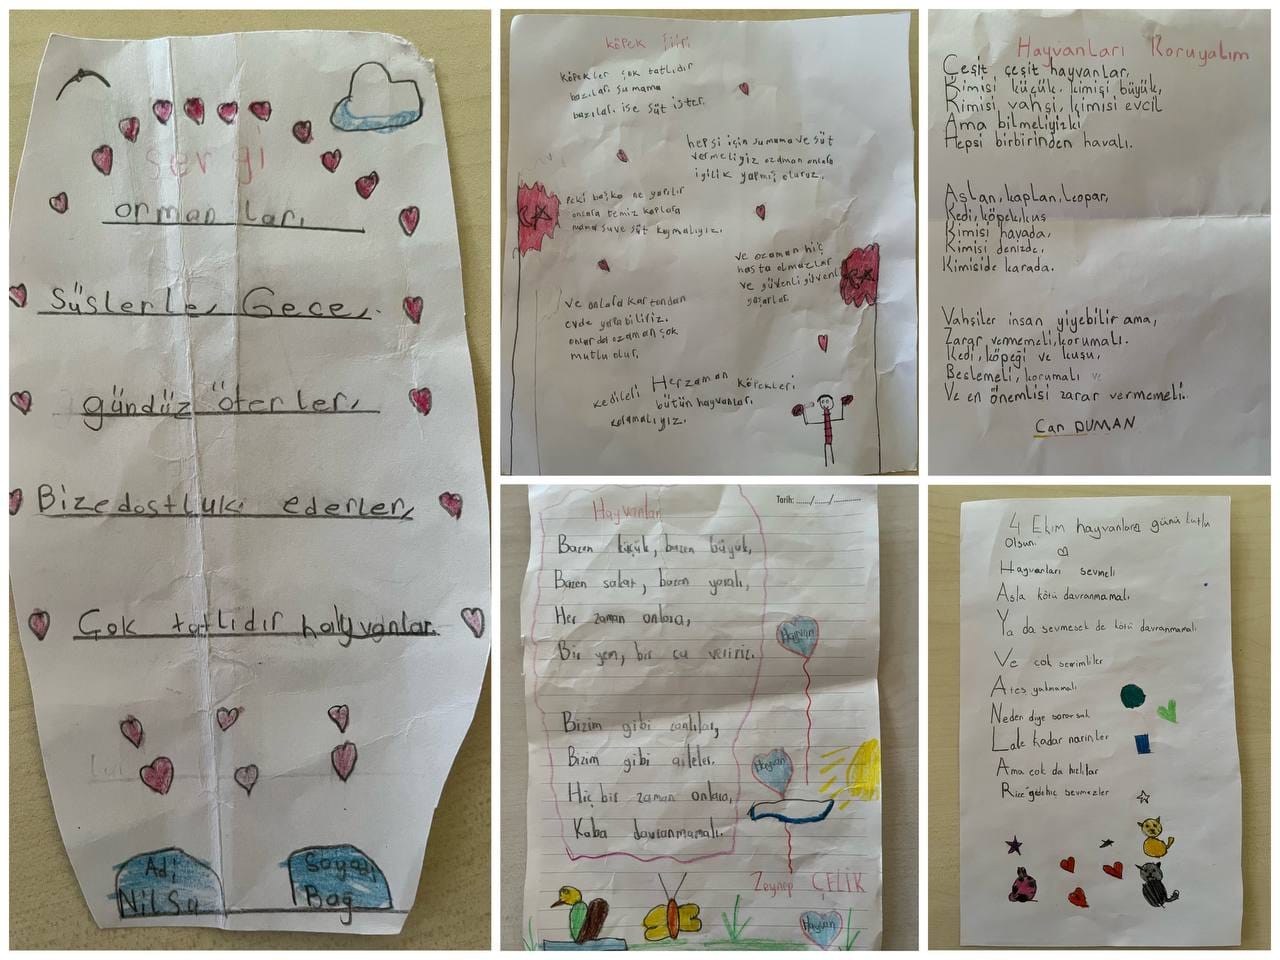 sevgi
ormanları
Süslerle, Gece,
gündüz öterler,
Bizedostluk ederler,
Çok tatlıdır hayvanlar.
Adı
NilSu
Soyadı
Bağ
köpek şiiri
köpekler çok tatlıdır
bazıları su mama
bazıları ise süt ister.
hepsi için su mama ve süt
vermeliyiz ozaman onlara
iyilik yapmış oluruz.
peki başka ne yapılır
onlara temiz kaplara
mama su ve süt koymalıyız.
ve ozaman hiç
hasta olmazlar
ve güvenli güvenli
yaşarlar.
ve onlara kartondan
evde yapabiliriz.
onlarda ozaman çok
mutlu olur.
Herzaman köpekleri
kedileri bütün hayvanları
korumalıyız.
Hayvanları Koruyalım
Çeşit çeşit hayvanlar,
Kimisi küçük, kimisi büyük,
Kimisi vahşi, kimisi evcil
Ama bilmeliyizki
Hepsi birbirinden havalı.
Aslan, kaplan, Leopar,
Kedi, köpek, kuş
Kimisi havada,
Kimisi denizde,
Kimiside karada.
Vahşiler insan yiyebilir ama,
Zarar vermemeli, korumalı.
Kedi, köpeği ve kuşu,
Beslemeli, korumalı ve
Ve en önemlisi zarar vermemeli.
Can DUMAN
Tarih: ....../....../............
Hayvanlar
Bazen küçük, bazen büyük,
Bazen sakat, bazen yaralı,
Her zaman onlara,
Bir yem, bir su veririz.
Bizim gibi canlılar,
Bizim gibi aileler.
Hiç bir zaman onlara,
Kaba davranmamalı.
Hayvan
Hayvan
Zeynep ÇELİK
Hayvan
4 Ekim hayvanlara günü kutlu
olsun.
Hayvanları sevmeli
Asla kötü davranmamalı
Ya da sevmesek de kötü davranmamalı
Ve çok sevimliler
Ateş yakmamalı
Neden diye sorarsak
Lale kadar narinler
Ama çok da hızlılar
hiç sevmezler